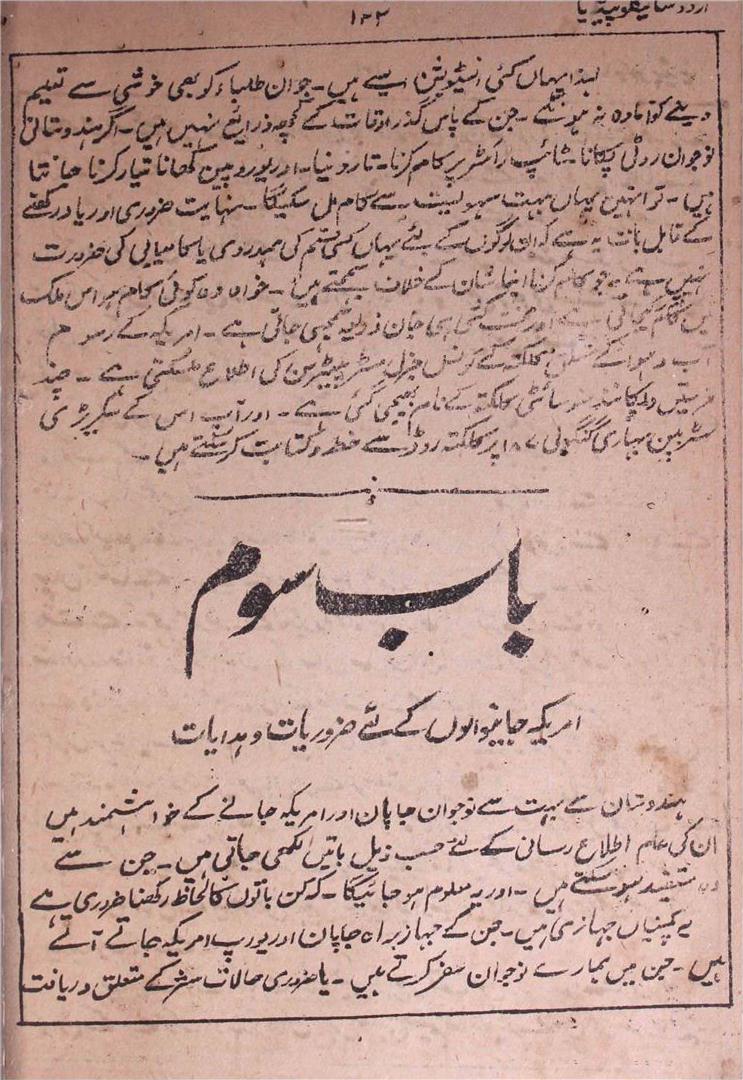 اردو سائیکلوپیڈیا
۱۳۲
لہذا یہاں کئی انسٹیٹیوشن ایسے ہیں۔ جو ان طلباء کو بھی خوشی سے تعلیم
دینے کو آمادہ نہ ہونگے۔ جن کے پاس گذر اوقات کے کچھ ذرائع نہیں ہیں۔ اگر ہندوستانی
نوجوان روٹی پکانا۔ ٹائپ رائٹر پر کام کرنا۔ تار دینا۔ اور یوروپین کھانا تیار کرنا جانتا
ہیں۔ تو انہیں یہاں بہت سہولیت سے کام مل سکیگا۔ نہایت ضروری اور یاد رکھنے
کے قابل بات یہ ہے کہ ان لوگوں کے لئے یہاں کسی قسم کی ہمدردی یا کامیابی کی ضرورت
نہیں ہے۔ جو کام کرنا اپنا شان کے خلاف سمجھتے ہیں۔ خواہ وہ کوئی کام ہو اس ملک
میں کام کیا جاتا ہے اور محنت کشی ہی جان ذولیہ سمجھی جاتی ہے۔ امریکہ کے رسوم
آب و ہوا کے متعلق کلکتہ کے کونسل جنرل مسٹر پیٹرسن کی اطلاع مل سکتی ہے۔ چند
سوسائٹی کلکتہ کے نام بھیجی گئی ہے۔ اور آپ اس کے سکریٹری
مسٹر بپن بہاری گنگولی ۱۸۷ پر کلکتہ روڈ سے خط و کتابت کر سکتے ہیں۔
باب سوم
امریکہ جانیوالوں کے لئے ضروریات و ہدایات
ہندوستان سے بہت سے نوجوان جاپان اور امریکہ جانے کے خواہشمند ہیں
ان کی عام اطلاع رسانی کے لئے حسب ذیل باتیں لکھی جاتی ہیں۔ جن سے
وہ مستفید ہو سکتے ہیں۔ اور یہ معلوم ہو جائیگا۔ کہ کن باتوں کا لحاظ رکھنا ضروری ہے
یہ کمپنیاں جہازی ہیں۔ جن کے جہاز براہ جاپان اور یورپ امریکہ جاتے آتے
ہیں۔ جن میں ہمارے نوجوان سفر کرتے ہیں۔ یا ضروری حالات سفر کے متعلق دریافت